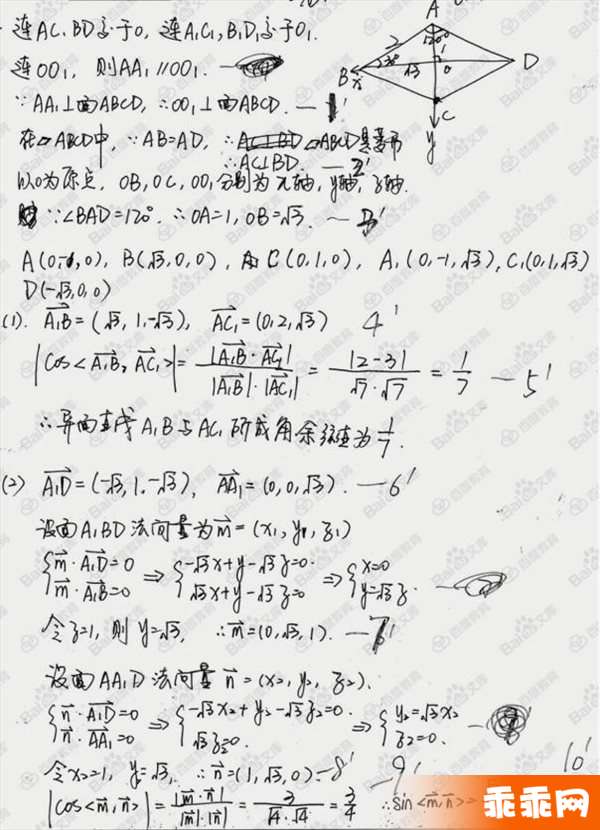 连AC,BD交于O,连A₁C₁,B₁D₁交于O₁.
连OO₁, 则AA₁//OO₁.
∵AA₁⊥面ABCD, ∴OO₁⊥面ABCD. —1'
在▱ABCD中, ∵AB=AD, ∴▱ABCD是菱形
∴AC⊥BD. —2'
以O为原点, OB,OC,OO₁分别为x轴,y轴,z轴.
∵∠BAD=120°. ∴OA=1,OB=√3. —3'
A(0,-1,0), B(√3,0,0), C(0,1,0), A₁(0,-1,√3), C₁(0,1,√3)
D(-√3,0,0)
(1). A₁B=(√3,1,-√3), AC₁=(0,2,√3) 4'
|cos<A₁B,AC₁>|=|A₁B·AC₁|/|A₁B|·|AC₁|=|2-3|/√7·√7=1/7 —5'
∴异面直线A₁B与AC₁所成角余弦值为1/7.
(2) A₁D=(-√3,1,-√3), AA₁=(0,0,√3). —6'
设面A₁BD法向量为m=(x₁,y₁,z₁)
{m·A₁D=0 ⇒{-√3x+y-√3z=0 ⇒{x=0
{m·A₁B=0 {√3x+y-√3z=0 {y=√3z.
令z=1, 则y=√3, ∴m=(0,√3,1). —7'
设面AA₁D法向量n=(x₂,y₂,z₂).
{n·A₁D=0 ⇒{-√3x₂+y₂-√3z₂=0 ⇒{y₂=√3x₂
{n·AA₁=0 {√3z₂=0 {z₂=0.
令x₂=1, y=√3, ∴n=(1,√3,0) —8' —9' 10'
|cos<m,n>|=|m·n|/|m|·|n|=3/√4·√4=3/4 ∴sin<m,n>=
A
2
120°
30°
B
x
√3
1
O
D
C
y
百度教育
Bai 文库
乖乖网